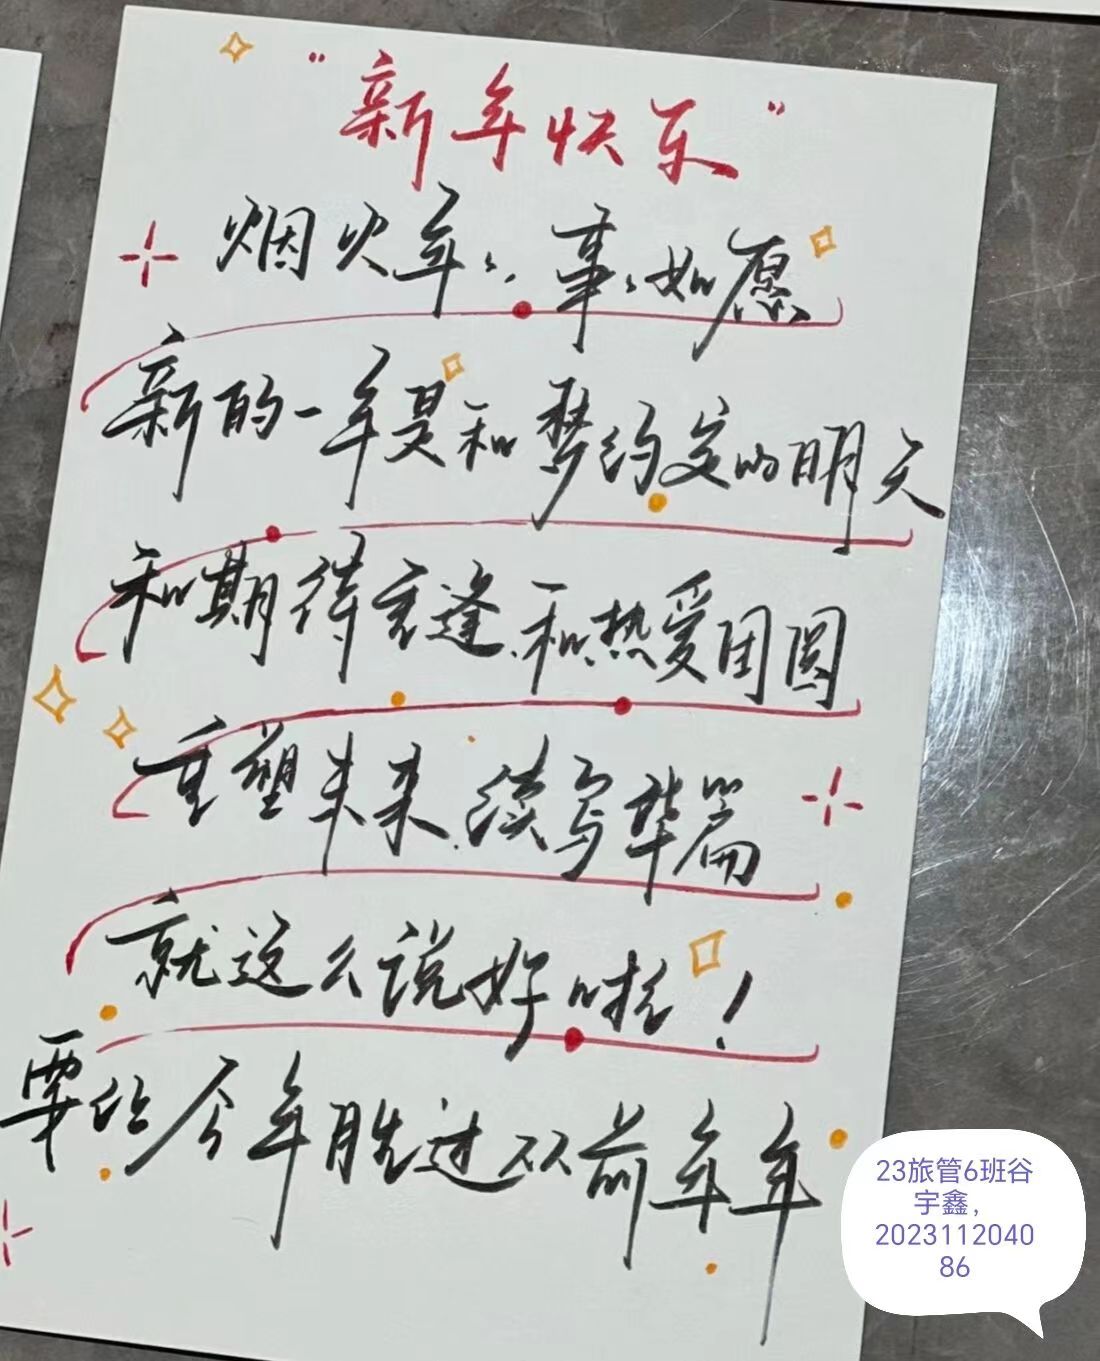 "新年快乐"
烟火年々，事々如愿
新的一年是和梦约定的明天
和期待重逢，和热爱团圆
重塑未来，续写华篇
就这么说好啦！
要让今年胜过从前年年
23旅管6班谷
宇鑫，
2023112040
86